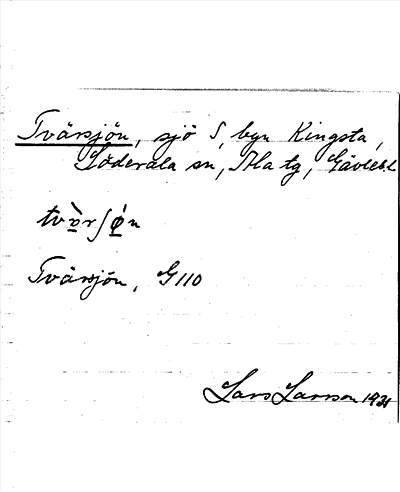 Tvärsjön, sjö S, byn Kingsta,
Söderala sn, Ala tg, Gävlebl
Tvärsjön, G 110
Lars Larsson 1931